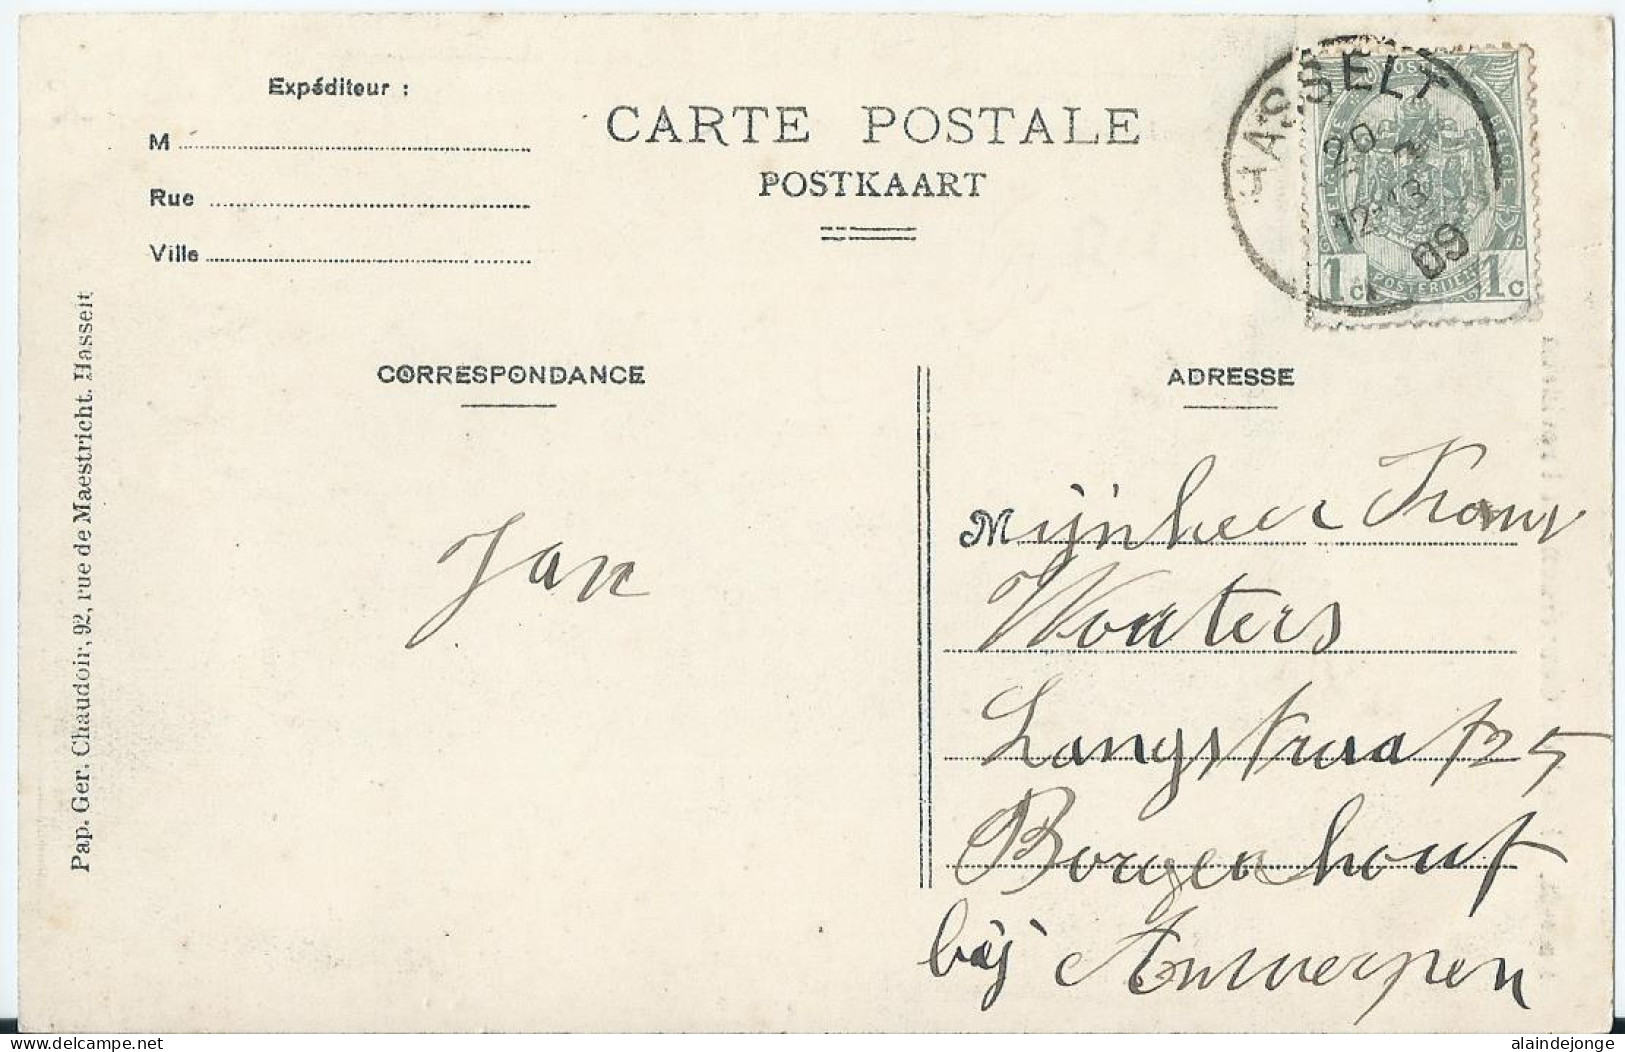 Expéditeur :
M
Rue
Ville
CARTE POSTALE
POSTKAART
HASSELT
20
12-13
09
POSTERIJEN
1c 1c
CORRESPONDANCE
ADRESSE
Jan
Mijnheer Frans
Wouters
Langstraat 25
Borgerhout
bij Antwerpen
Pap. Ger. Chaudoir, 92, rue de Maestricht. Hasselt
delcampe.net
alaindejonge